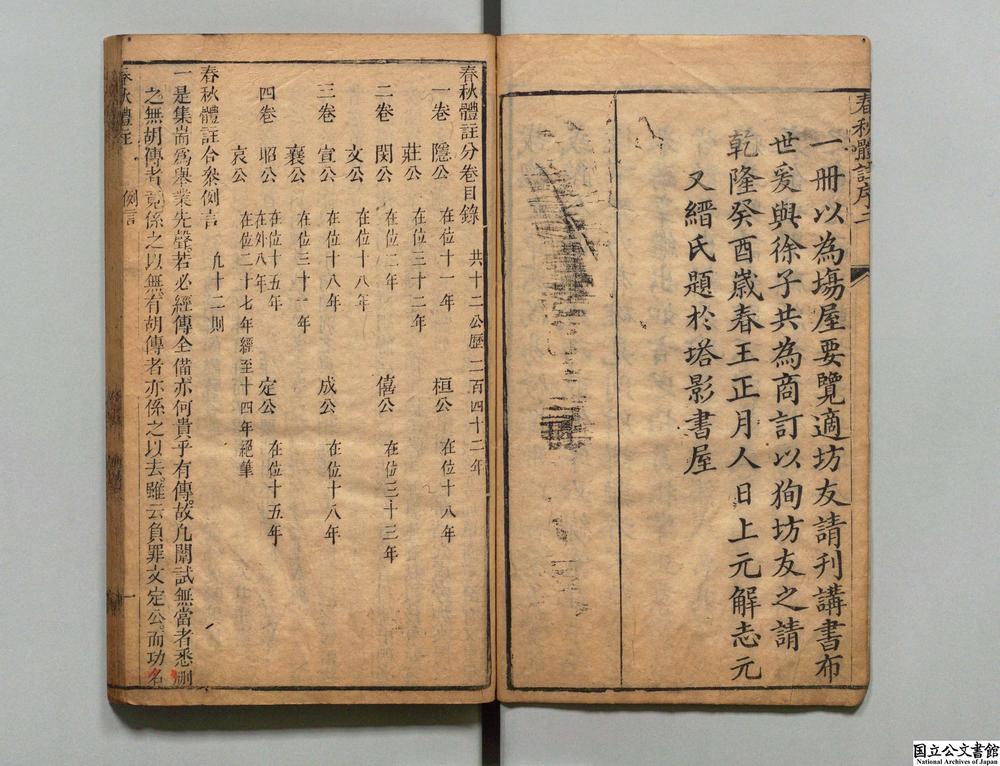 春秋體註序 二
一冊以為塲屋要覽適坊友請刊講書布
世爰與徐子共為商訂以狥坊友之請
乾隆癸酉歲春王正月人日上元解志元
又縉氏題於塔影書屋
春秋體註分卷目錄 共十二公歷二百四十二年
一卷 隱公 在位十一年 桓公 在位十八年
莊公 在位三十二年
二卷 閔公 在位二年 僖公 在位三十三年
文公 在位十八年
三卷 宣公 在位十八年 成公 在位十八年
襄公 在位三十一年
四卷 昭公 在位廿五年 在外八年 定公 在位十五年
哀公 在位二十七年經至十四年絕筆
春秋體註合叅例言 九十二則
一是集耑為舉業先聲若必經傳全備亦何貴乎有傳故凡闈試無當者悉刪
之無胡傳者竟係之以無有胡傳者亦係之以去雖云負罪文定公而功名
春秋體註 例言 一
国立公文書館
National Archives of Japan